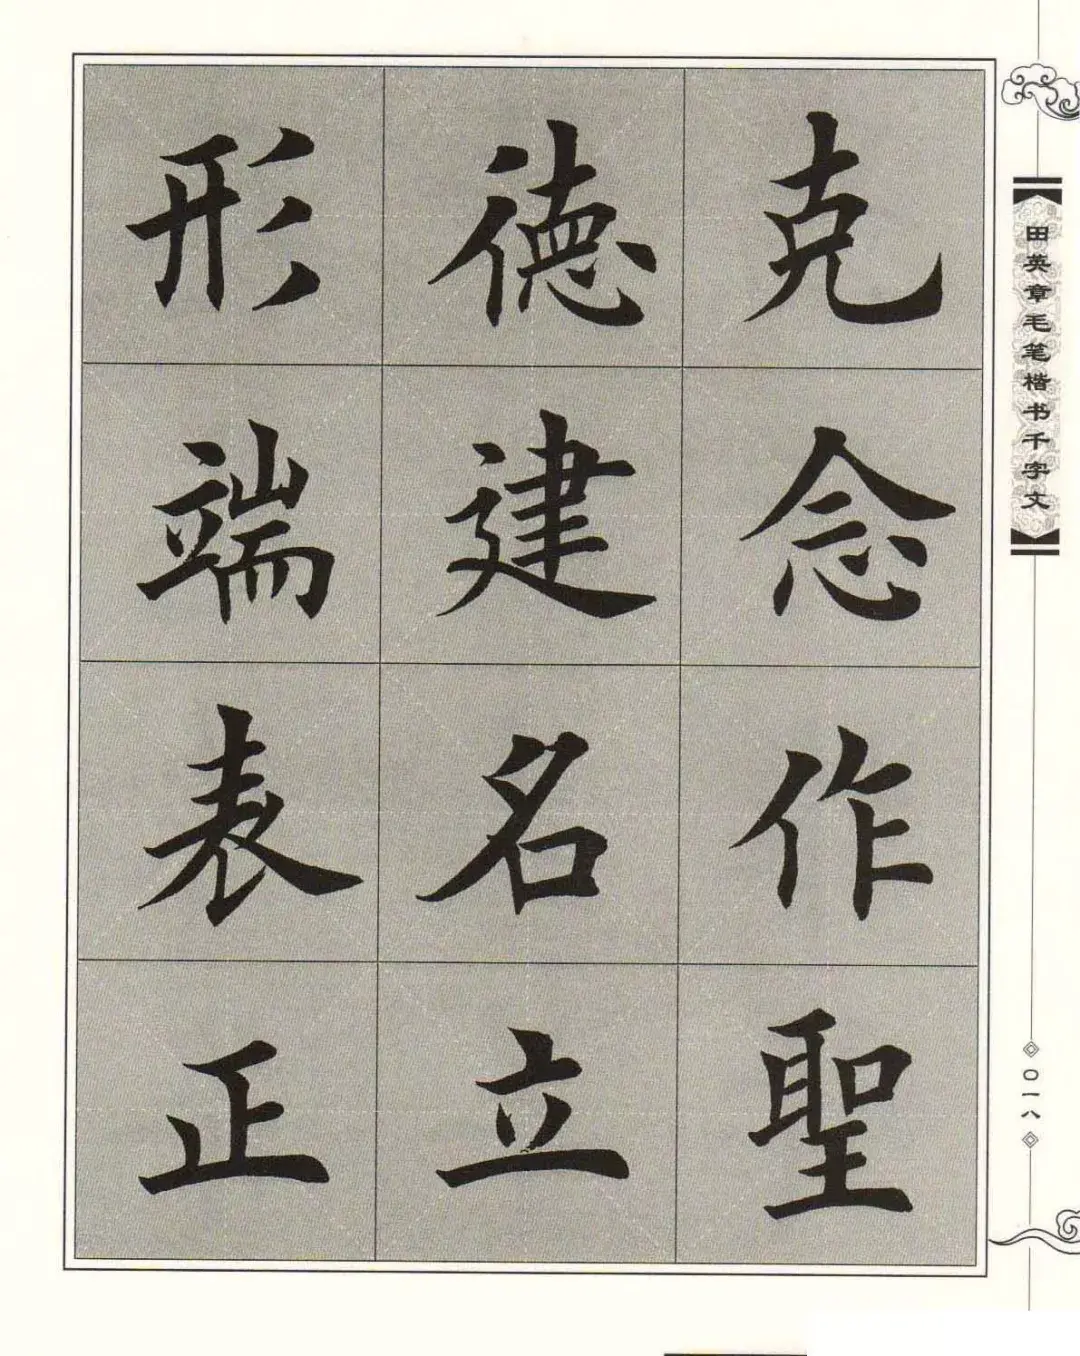 田英章毛笔楷书千字文
克念作聖
德建名立
形端表正
〇一八